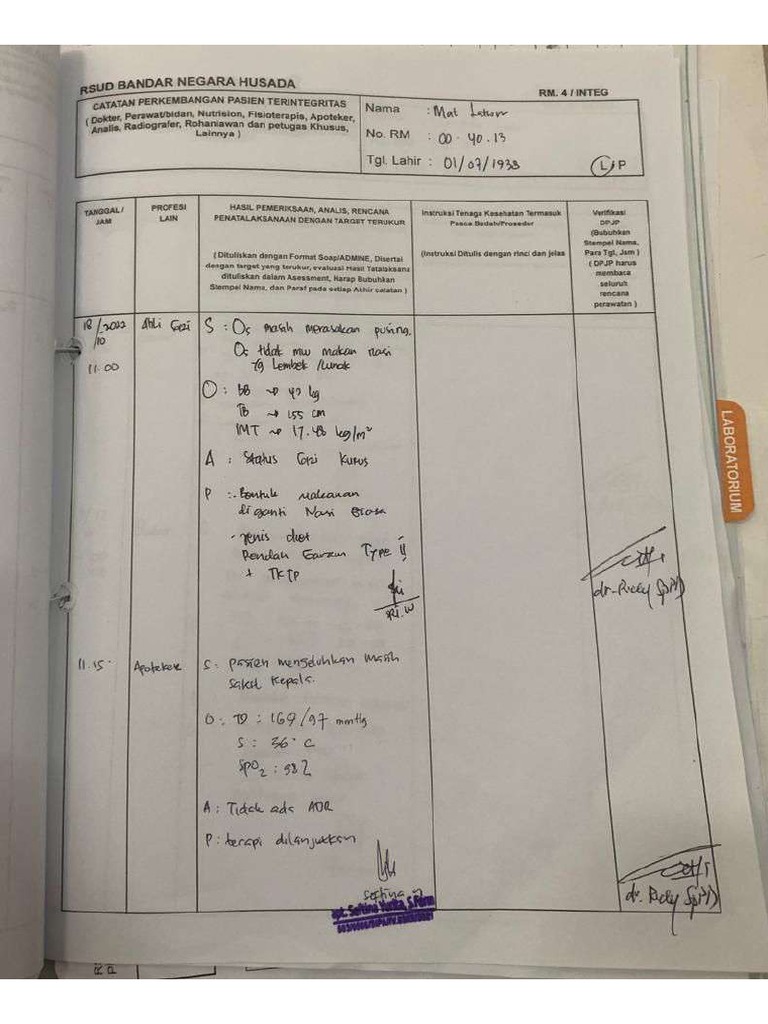 RSUD BANDAR NEGARA HUSADA
RM. 4 / INTEG
CATATAN PERKEMBANGAN PASIEN TERINTEGRITAS
( Dokter, Perawat/bidan, Nutrision, Fisioterapis, Apoteker,
Analis, Radiografer, Rohaniawan dan petugas Khusus,
Lainnya )
Nama : Mat
No. RM : 00.40.13
Tgl. Lahir : 01/07/1933
L / P
TANGGAL / JAM
PROFESI LAIN
HASIL PEMERIKSAAN, ANALIS, RENCANA
PENATALAKSANAAN DENGAN TARGET TERUKUR
( Dituliskan dengan Format Soap/ADMINE, Disertai
dengan target yang terukur, evaluasi Hasil Tatalaksana
dituliskan dalam Asessment, Harap Bubuhkan
Stempel Nama, dan Paraf pada setiap Akhir catatan )
Instruksi Tenaga Kesehatan Termasuk
Pasca Bedah/Prosedur
(Instruksi Ditulis dengan rinci dan jelas
Verifikasi
DPJP
(Bubuhkan
Stempel Nama,
Para Tgl, Jam )
( DPJP harus
membaca
seluruh
rencana
perawatan )
18/2022
/10
11.00
Ahli Gizi
S : Os masih merasakan pusing.
Os tidak mau makan nasi
yg lembek / lunak
O : BB → 42 kg
TB → 155 cm
IMT → 17.48 kg/m²
A : Status Gizi Kurus
P : - Bentuk makanan
diganti Nasi Biasa
- Jenis diet
Rendah Garam Type II
+ TKTP
Ri.W
dr. Ricky SpPD
11.15
Apoteker
S : pasien mengeluhkan masih
sakit kepala.
O : TD : 169/97 mmHg
S : 36°C
SpO2 : 98%
A : Tidak ada ADR
P : terapi dilanjutkan
Seftina
apt. Seftina Yurita, S.Farm
dr. Ricky SpPD
LABORATORIUM